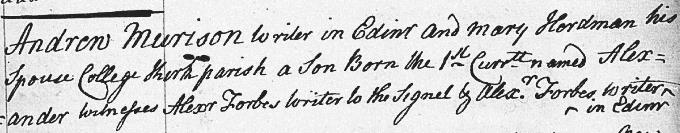 Andrew Murison writer in Edinr and Mary Hordman his
Spouse College Kirk parish a Son Born the 1st Currtt named Alex=
=ander witnesses Alexr Forbes writer to the Signet & Alexr Forbes writer
in Edinr